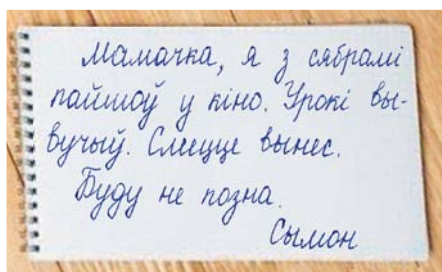 Мамачка, я з сябрамі
пайшоў у кіно. Урокі вы-
вучыў. Смецце вынес.
Буду не позна.
Сымон